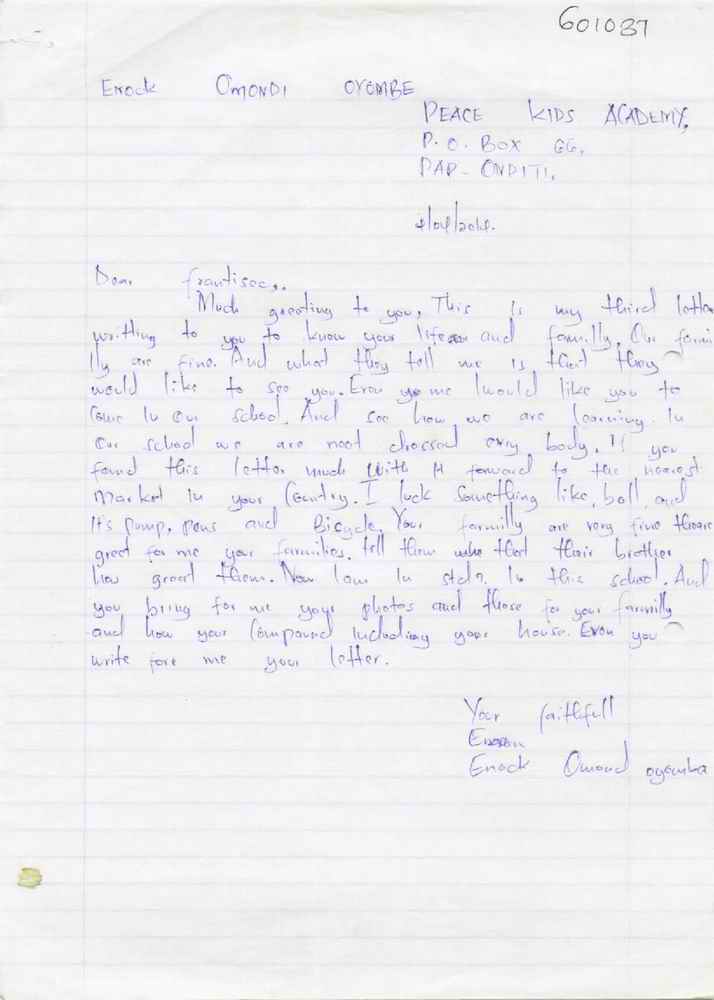 601037
Enock OMONDI OYOMBE
PEACE KIDS ACADEMY,
P.O. BOX GG,
PAP-ONDITI,
Dear frantisec,.
Much greeting to you, This is my third letter
writting to you to know your life and familly. Our farmi
lly are fine. And what they tell me is that they
would like to see you. Even me I would like you to
Come In Our school. And see how we are learning. In
Our school we are noot dressed evry body. If you
found this letter much With it forward to the nearest
Market In your Country. I luck something like, ball, and
It's pump, pens and Bicycle. Your farmilly are very fine
greet for me your farmilies. tell them who that their brother
how greet them. Now Iam In std7. In this school. And
you bring for me your photos and those for your farmilly
and how your Compound Including your house. Even you
write fore me your letter.
Your faithfull
Enock Omond oyomba